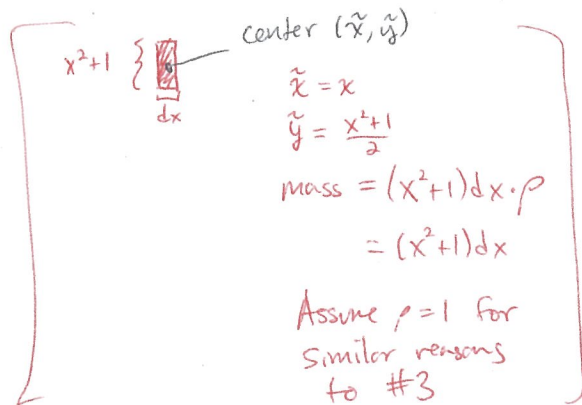 center (x̃, ỹ)
x²+1
dx
x̃ = x
ỹ = (x²+1)/2
mass = (x²+1)dx·ρ
= (x²+1)dx
Assume ρ=1 for
similar reasons
to #3